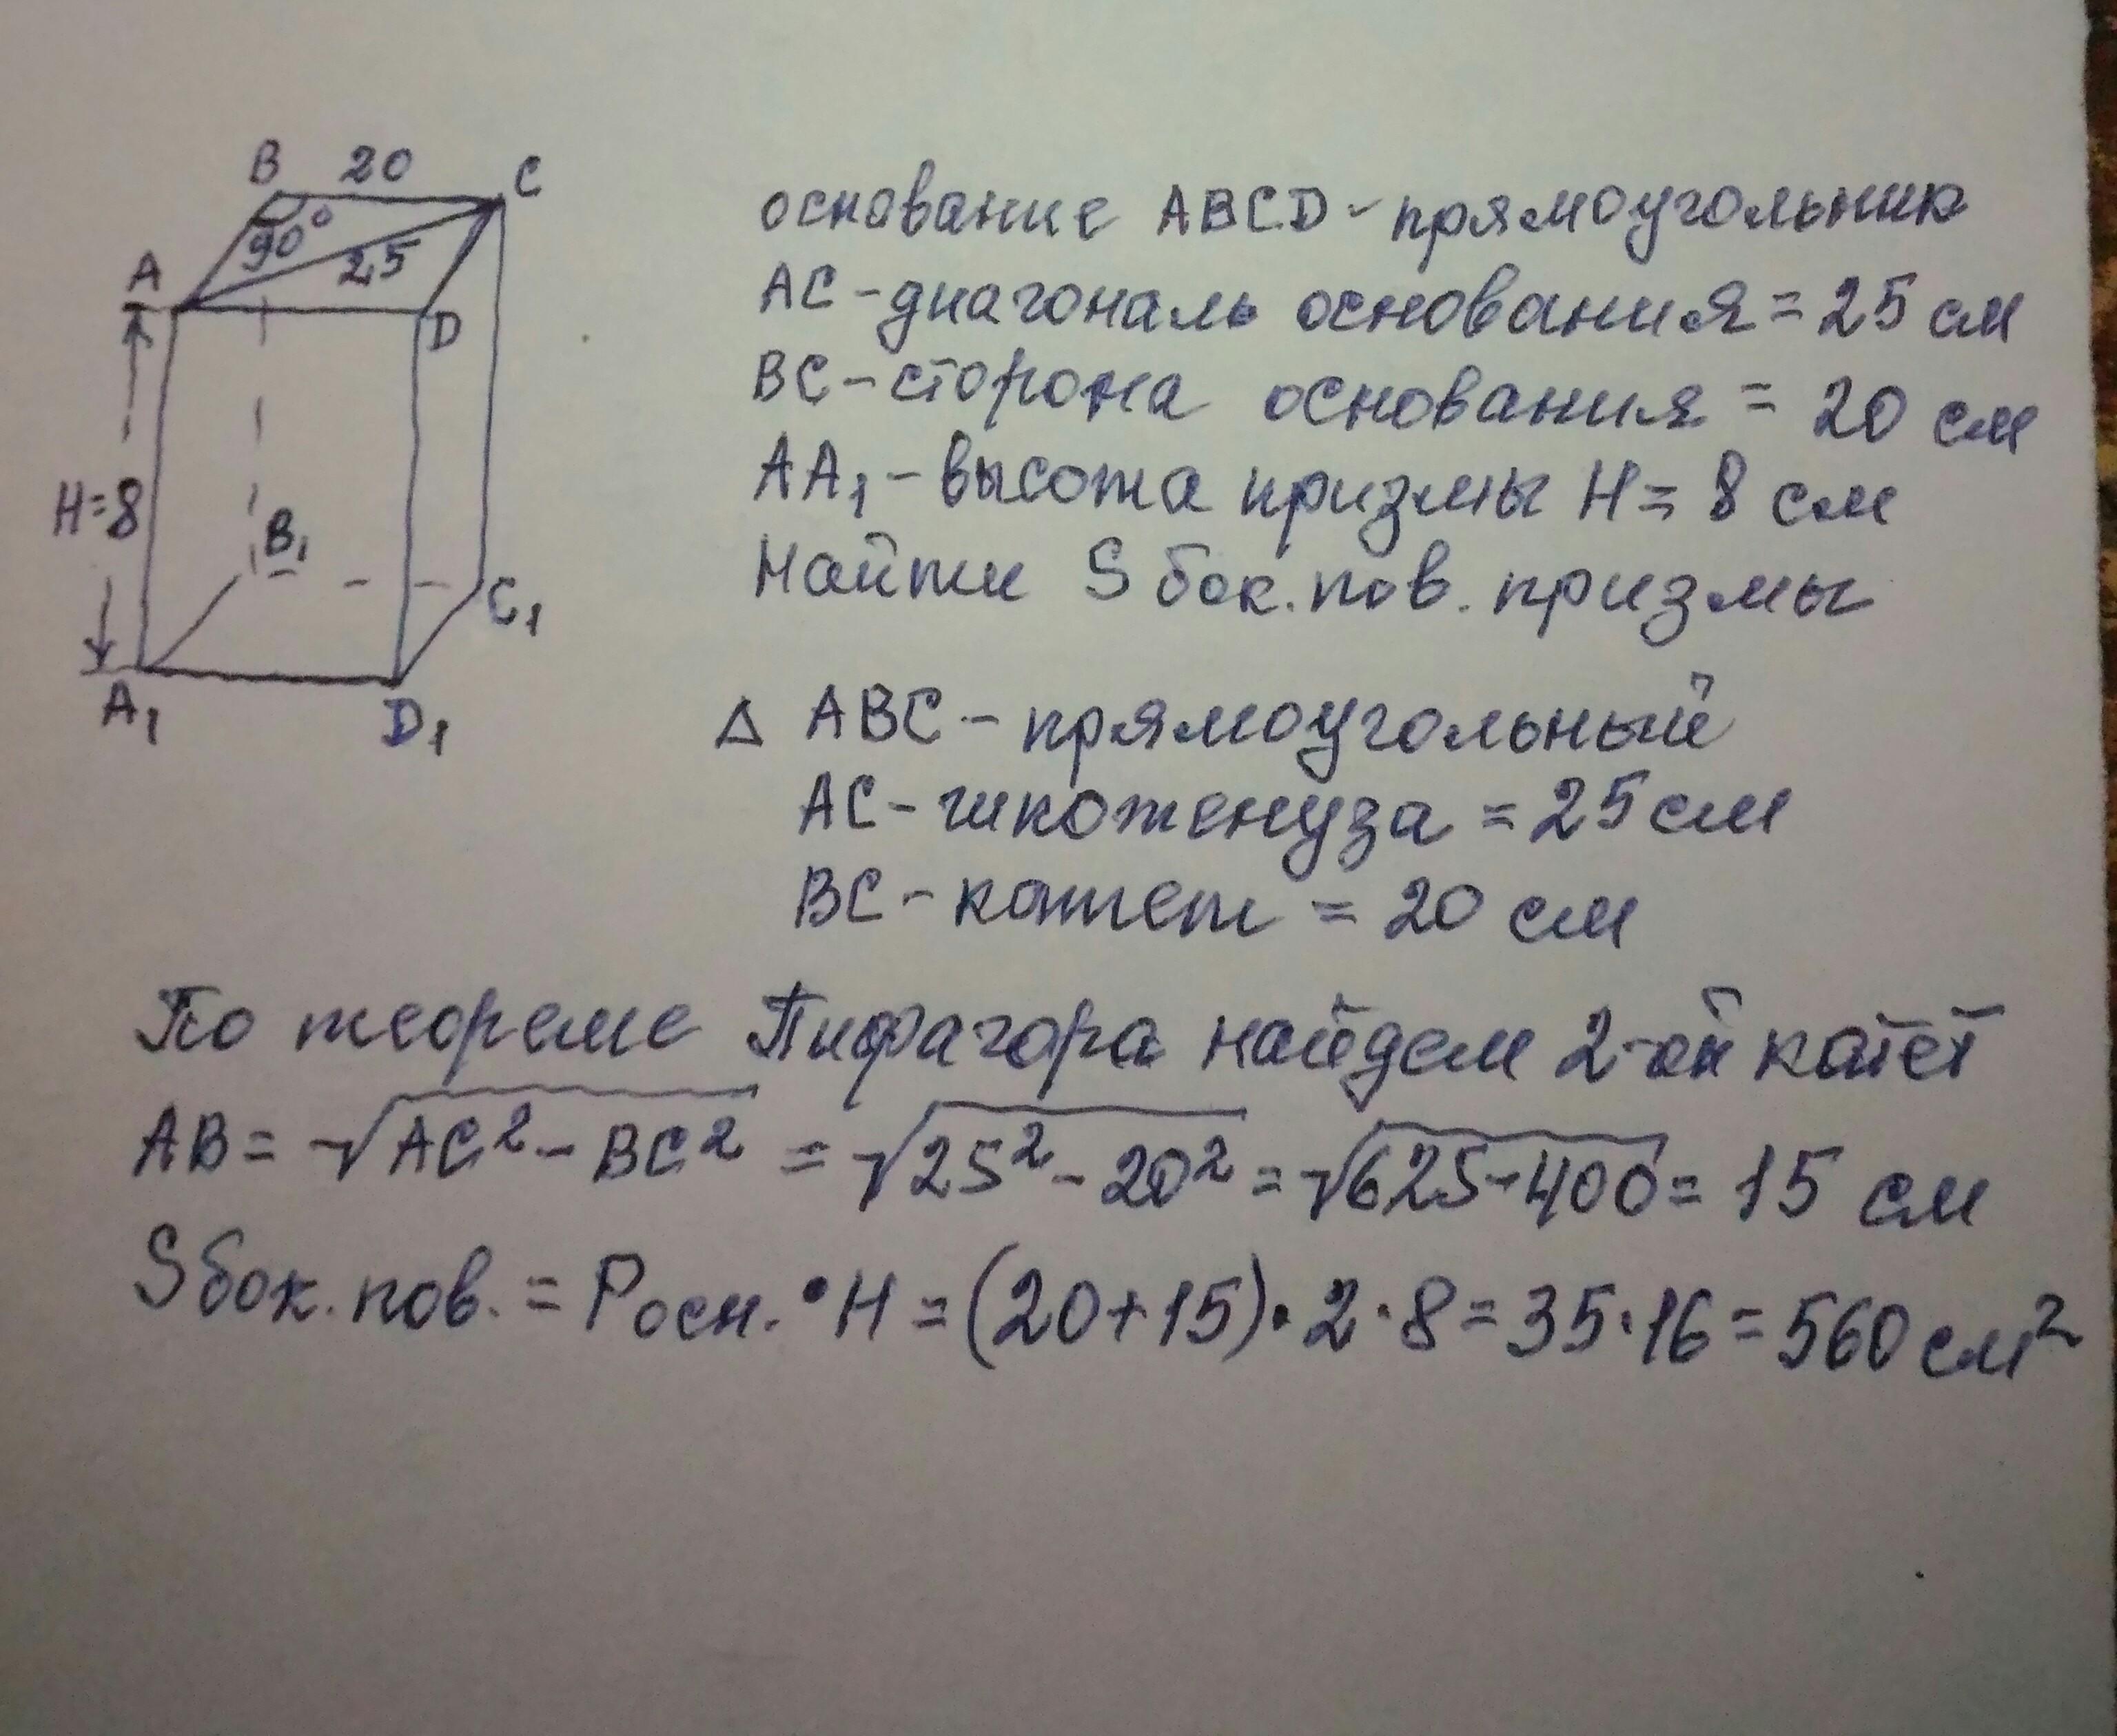 B 20 C
90° 25
A
D
H=8
B₁
C₁
A₁ D₁
основание ABCD - прямоугольник
AC - диагональ основания = 25 см
BC - сторона основания = 20 см
AA₁ - высота призмы H = 8 см
Найти S бок. пов. призмы
△ ABC - прямоугольный
AC - гипотенуза = 25 см
BC - катет = 20 см
По теореме Пифагора найдем 2-ой катет
AB = √AC² - BC² = √25² - 20² = √625 - 400 = 15 см
S бок. пов. = P осн. · H = (20+15) · 2 · 8 = 35 · 16 = 560 см²